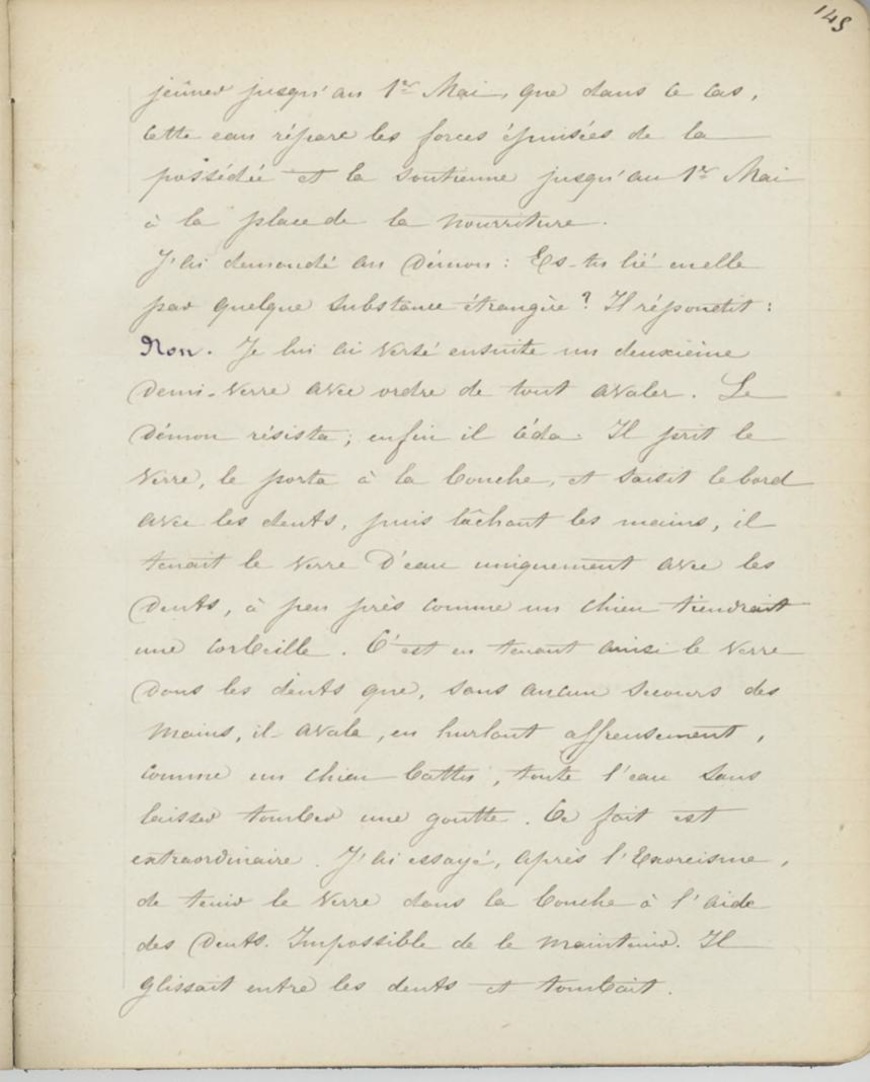 149
jeûner jusqu'au 1er Mai, que dans ce cas,
cette eau répare les forces épuisées de la
possédée et la soutienne jusqu'au 1er Mai
à la place de la nourriture.
J'ai demandé au Démon : Es-tu lié en elle
par quelque substance étrangère ? Il répondit :
Non. Je lui ai versé ensuite un deuxième
Demi-verre avec ordre de tout avaler. Le
Démon résista ; enfin il céda. Il prit le
verre, le porta à la bouche, et saisit le bord
avec les dents, puis lâchant les mains, il
tenait le verre d'eau uniquement avec les
Dents, à peu près comme un chien tiendrait
une corbeille. C'est en tenant ainsi le verre
Dans les dents que, sans aucun secours des
mains, il avala, en hurlant affreusement,
comme un chien battu, toute l'eau sans
laisser tomber une goutte. Ce fait est
extraordinaire. J'ai essayé, après l'Exorcisme,
de tenir le verre dans la bouche à l'aide
des Dents. Impossible de le maintenir. Il
glissait entre les dents et tombait.